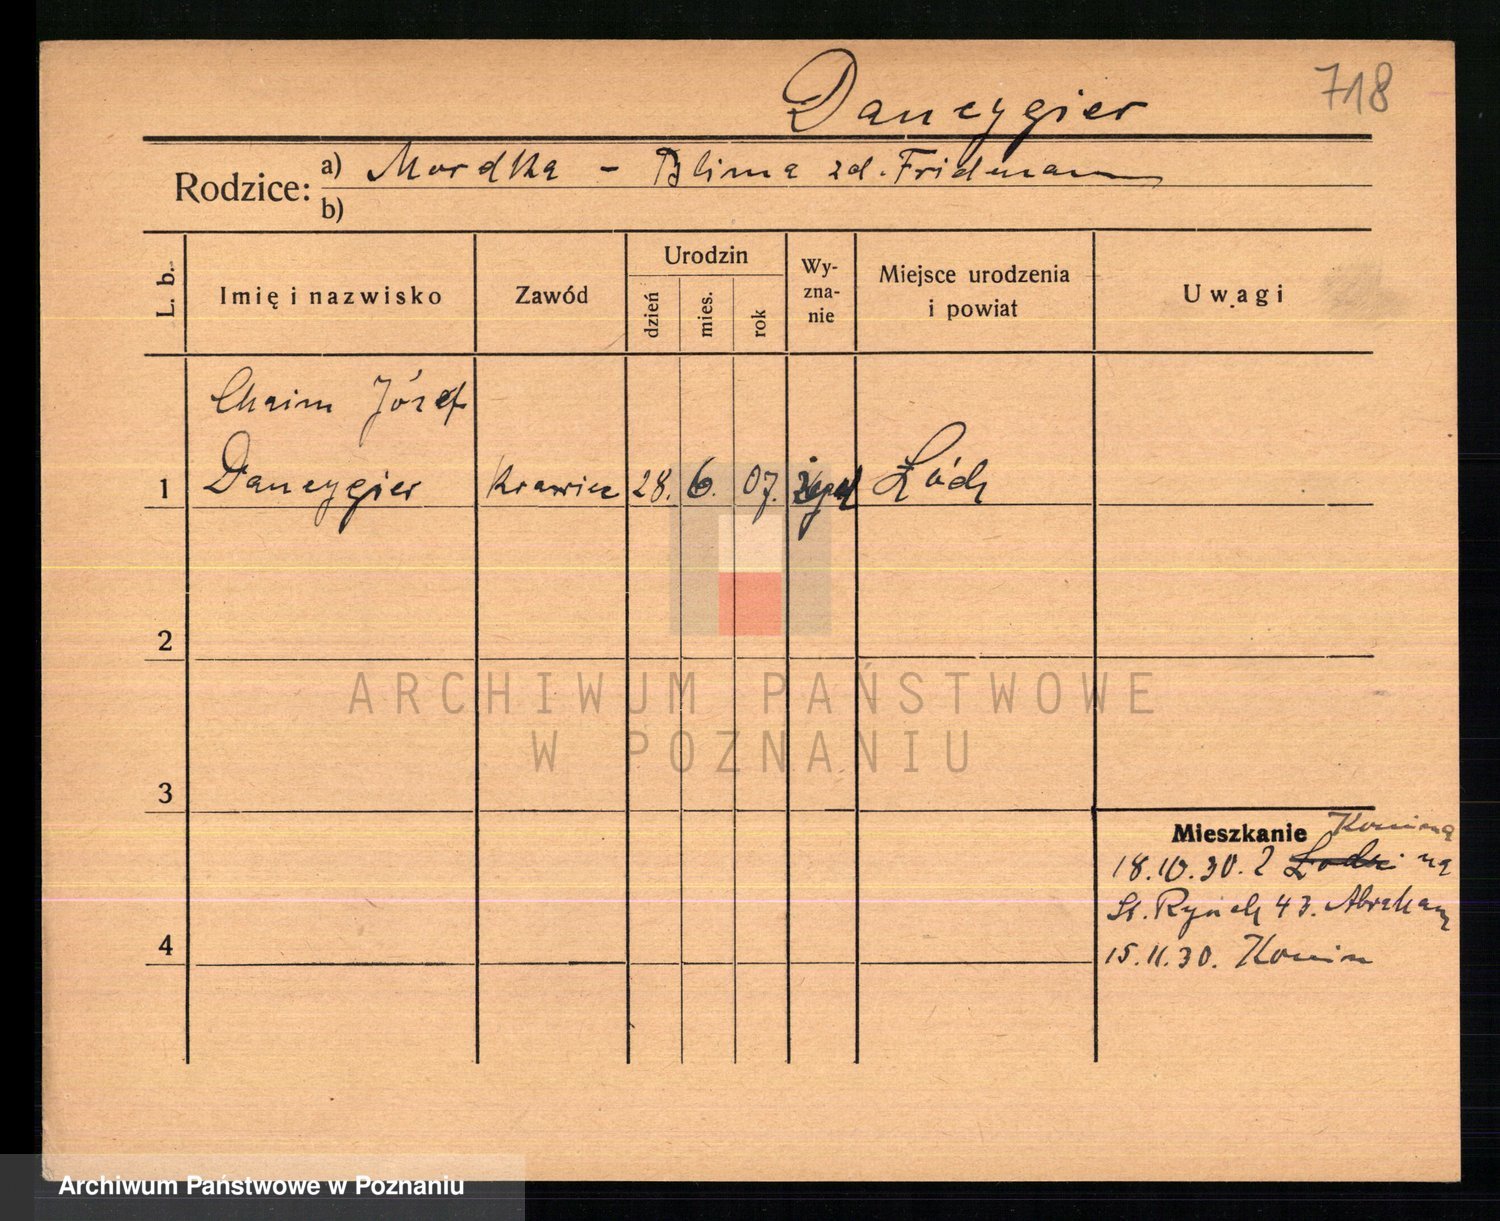 718
Dancygier
Rodzice: a) Mordka - Blima zd. Fridman
b)
L. b.
Imię i nazwisko
Zawód
Urodzin
dzień
mies.
rok
Wy-
zna-
nie
Miejsce urodzenia
i powiat
Uwagi
Chaim Józef
1 Dancygier Krawiec 28. 6. 07. Łódź
2
3
4
Mieszkanie Konina
18.10.30. z Łodzi na
St. Rynek 43. Abraham
15.11.30. Konin
ARCHIWUM PAŃSTWOWE
W POZNANIU
Archiwum Państwowe w Poznaniu